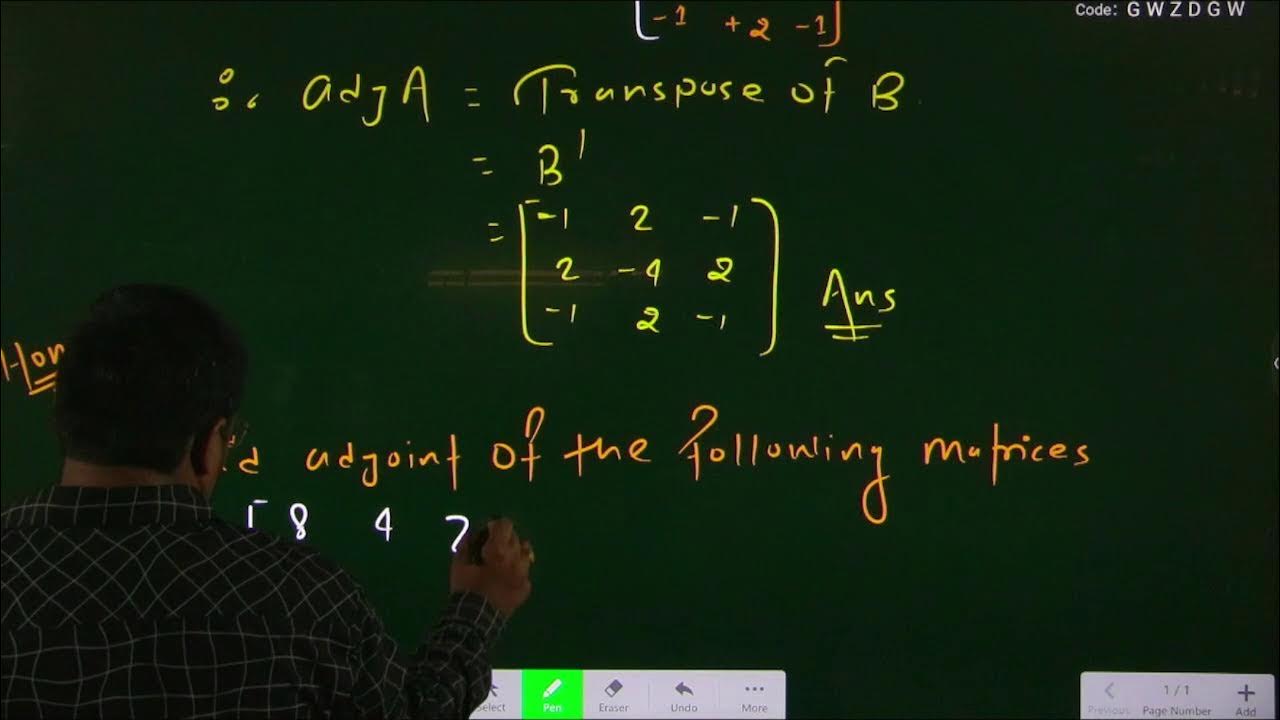 Code: G W Z D G W
[-1 +2 -1]
∴ adjA = Transpose of B
= B'
= [-1 2 -1
2 -4 2
-1 2 -1] Ans
adjoint of the following matrices
[8 4 7
Select Pen Eraser Undo More
1 / 1
Previous Page Number Add